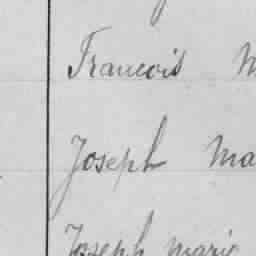 Francois
Joseph Ma
Joseph marie